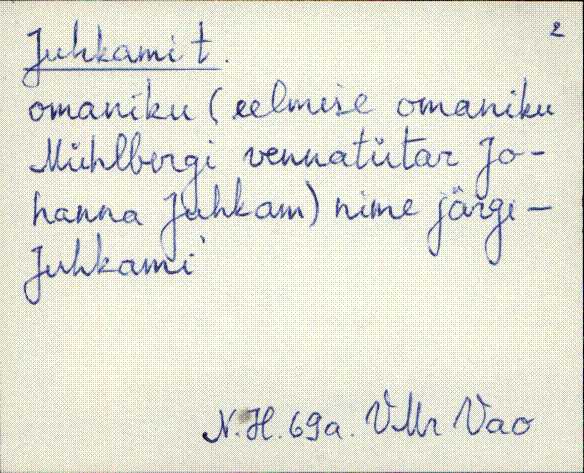 2
Juhkami t.
omaniku (eelmise omaniku
Mühlbergi vennatütar Jo-
hanna Juhkam) nime järgi –
Juhkami
N.H. 69a. VMr Vao